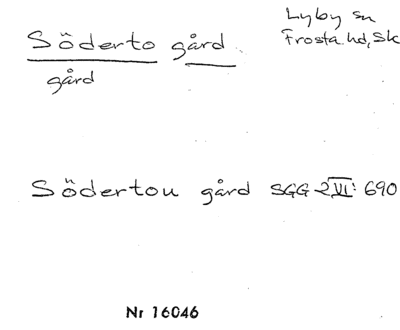 Söderto gård
Lyby sn
Frosta hd, Sk
gård
Södertou gård SGG 2VI: 690
Nr 16046